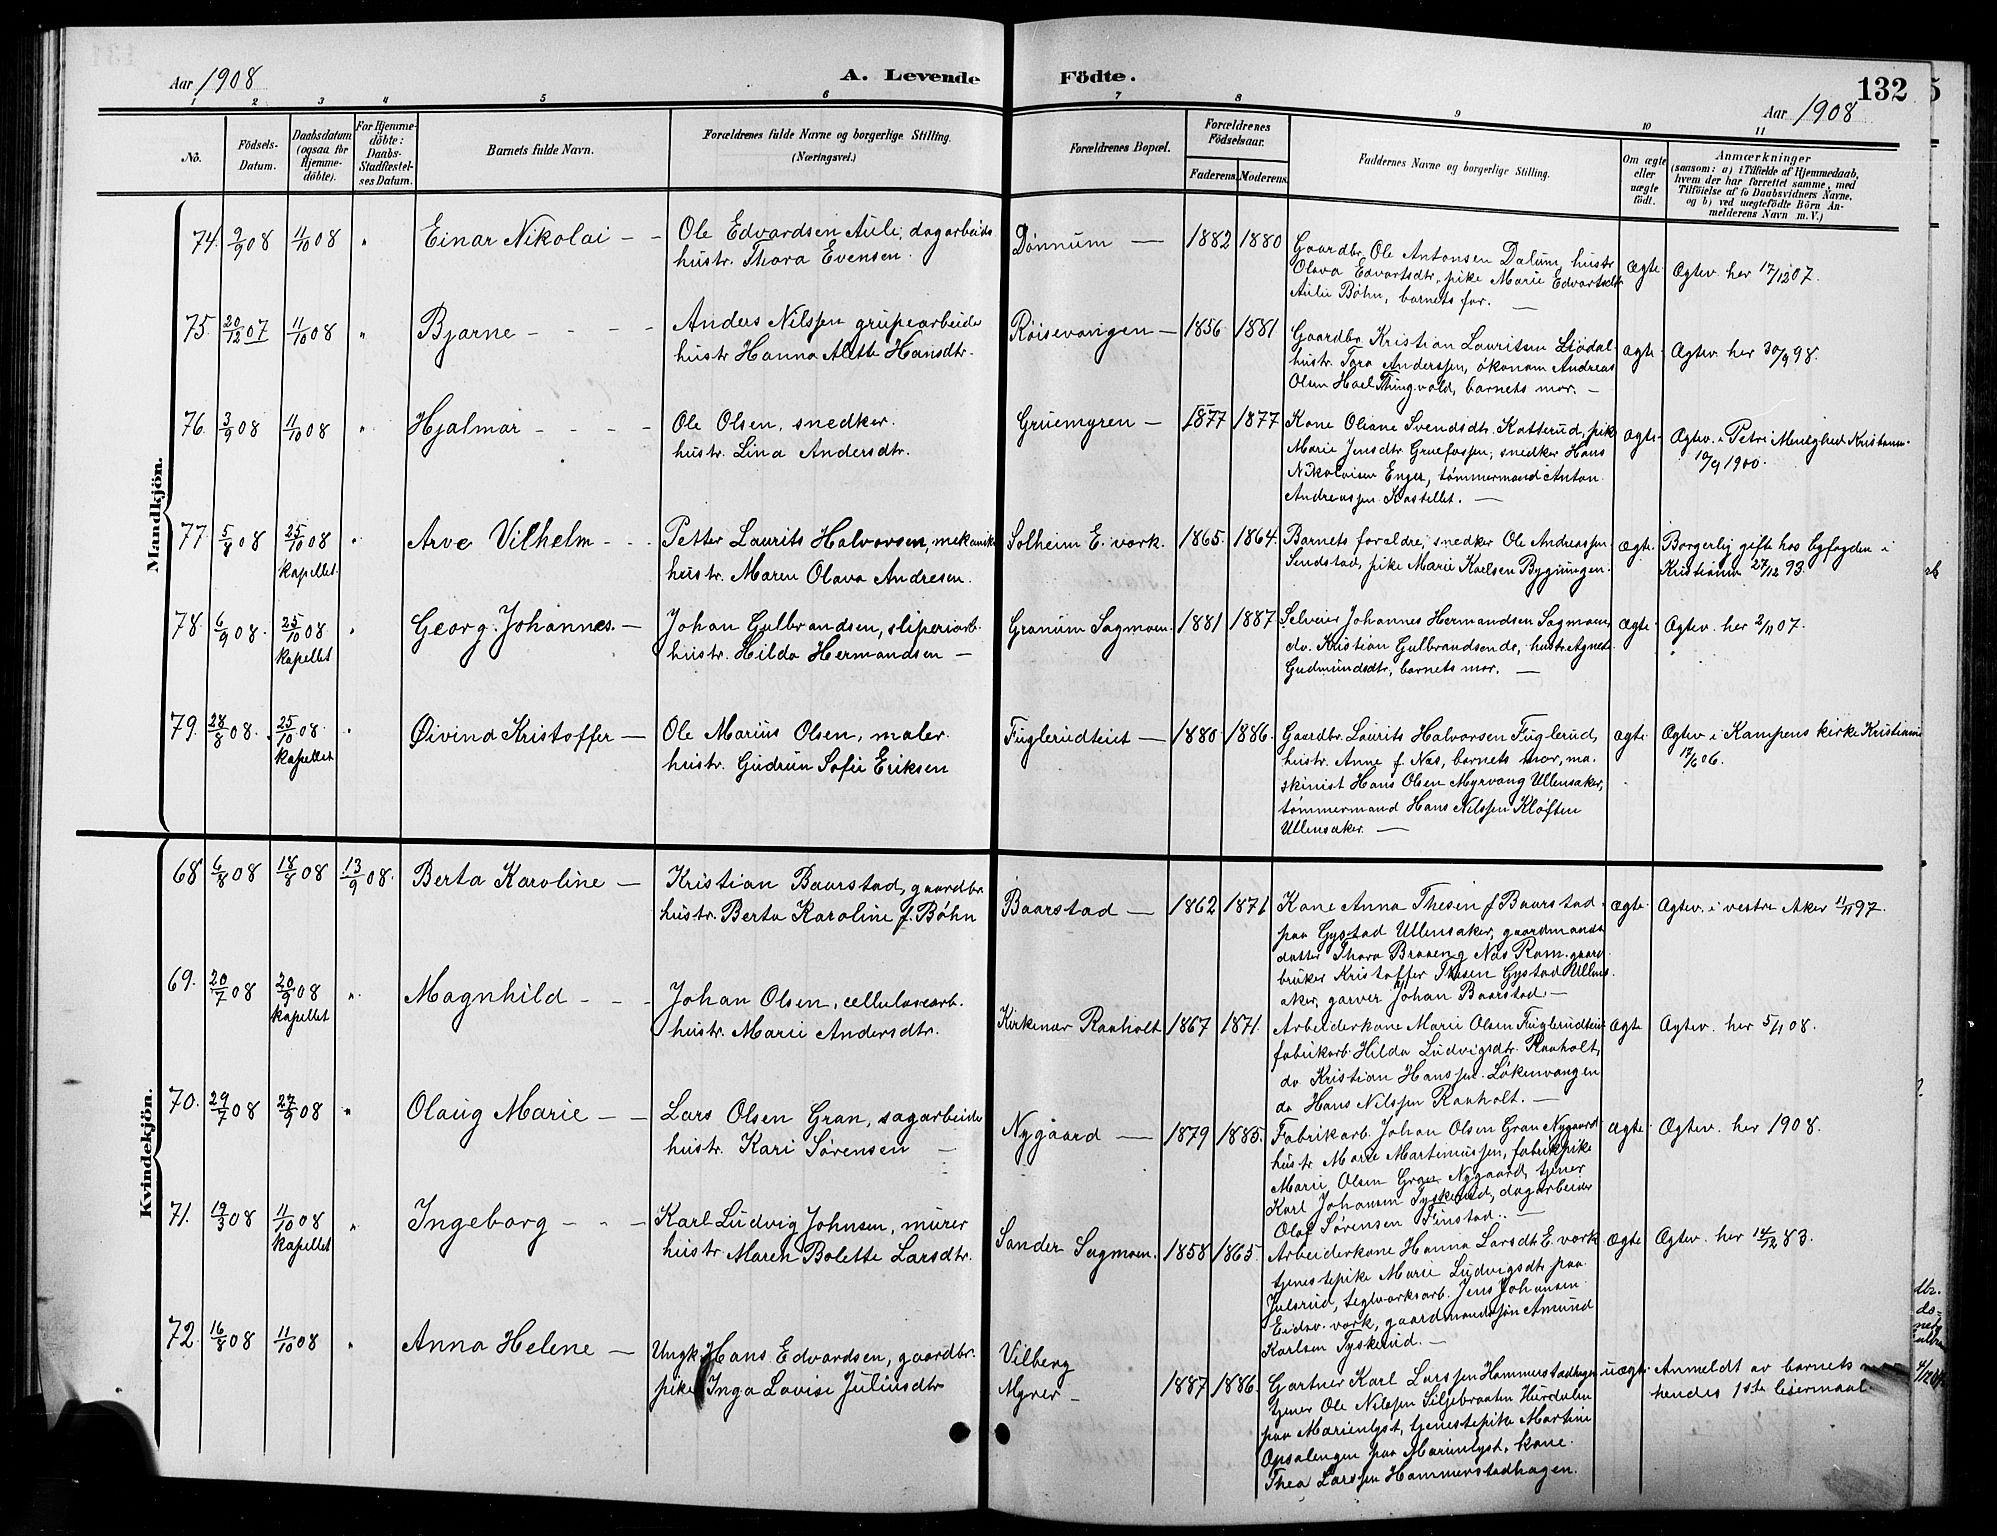 Aar 1908
A. Levende Födte.
132
Aar 1908
1 2 3 4 5 6 7 8 9 10 11
No.
Födsels-
Datum.
Daabsdatum
(ogsaa for
Hjemme-
döbte).
For Hjemme-
döbte:
Daabs-
Stadfæstel-
ses Datum.
Barnets fulde Navn.
Forældrenes fulde Navne og borgerlige Stilling.
(Næringsvei.)
Forældrenes Bopæl.
Forældrenes
Födselsaar.
Faderens. Moderens.
Faddernes Navne og borgerlige Stilling.
Om ægte
eller
uægte
födt.
Anmærkninger
(saasom: a) i Tilfælde af Hjemmedaab,
hvem der har forrettet samme, med
Tilföielse af to Daabsvidners Navne,
og b) ved uægtefödte Börn An-
melderens Navn m. V.)
Mandkjön.
74. 9/9 08 11/10 08 " Einar Nikolai — —
Ole Edvardsen Auli, dagarbeider
hustr. Thora Evensen.
Dønnum —
1882 1880
Gaardbr. Ole Antonsen Dalum, hustr.
Olava Edvartsdtr, pike Marie Edvartsdtr
Aulie Bøhn, barnets far. —
Ægte.
Ægtev. her 17/12 07.
75 20/12 07 11/10 08 " Bjarne - - - -
Anders Nilssen grubearbeider
hustr Hanna Alette Hansdtr.
Röisevangen —
1856 1881
Gaardbr. Kristian Lauritsen Ljödal
hustr. Tora Anderssen, økonom Andreas
Olsen Hoel Thingvold, barnets mor. —
ægte.
Ægtev. her 30/9 98.
76. 3/9 08 11/10 08 " Hjalmar - - - -
Ole Olsen, snedker.
hustr. Lina Andersdtr.
Gruemyren —
1877 1877
Kone Oliane Svendsdtr. Katterud, pike
Marie Jensdtr Gruefossen, snedker Hans
Nikolaisen Enger, tømmermand Anton
Andreassen Kastellet. —
ægte.
Ægtev. i Petri Menighed Kristiania
19/9 1900.
77. 5/8 08 25/10 08 " Arve Vilhelm - - -
kapellet.
Petter Laurits Halvorsen, mekaniker
hustr. Maren Olava Andresen.
Solheim E. verk.
1865. 1864.
Barnets foraldre, snedker Ole Andreassen
Sendstad, pike Marie Karlsen Bygningen.
ægte.
Borgerlig gifte hos byfogden i
Kristiania 27/12 93.
78. 6/9 08. 25/10 08 " Georg Johannes. —
kapellet
Johan Gulbrandsen, sliperiarb.
hustr. Hilda Hermandsen —
Granum Sagmoen.
1881 1887
Selveier Johannes Hermandsen Sagmoen,
do. Kristian Gulbrandsen do, hustr. Agnete
Gudmundsdtr, barnets mor. —
ægte.
Ægtev. her 2/11 07.
79. 28/8 08. 25/10 08. " Øivind Kristoffer —
kapellet
Ole Marius Olsen, maler
hustr. Gudrun Sofie Eriksen
Fuglerudteiet —
1880. 1886.
Gaardbr. Laurits Halvorsen Fuglerud,
hustr. Anne f. Nas, barnets mor, ma.
skinist Hans Olsen Myrvang Ullensaker,
tømmermand Hans Nilssen Kløften
Ullensaker. —
ægte
Ægtev i Kampens kirke Kristiania
17/6 06.
Kvindekjön.
68 6/8 08 18/8 08 13/9 08. Berta Karoline —
Kristian Baarstad, gaardbr.
hustr. Berta Karoline f. Bøhn
Baarstad —
1862 1871
Kone Anna Thesen f Baarstad
paa Gystad Ullensaker, gaardmands
datter Thora Braaeng Nas Rom. gaard
bruker Kristoffer Thesen Gystad Ullens
aker, garver Johan Baarstad —
ægte.
Ægtev. i vestre Aker 11/11 97.
69. 20/7 08 20/9 08 " Magnhild - - -
kapellet
Johan Olsen, cellulosearb.
hustr. Marie Andersdtr.
Kirkenær Raaholt
1867 1871.
Arbeiderkone Marie Olsen Fuglerudteiet
fabrikarb. Hilda Ludvigsdtr. Raaholt,
do Kristian Hanssen. Løkenvangen
do Hans Nilssen Raaholt. —
ægte
Ægtev. her 5/1 08.
70. 29/7 08 27/9 08 " Olaug Marie — —
Lars Olsen Gran, sagarbeider
hustr. Kari Sørensen —
Nygaard —
1879 1885.
Fabrikarb. Johan Olsen Gran Nygaard
hustr Marie Martinussen, fabrikpike
Marie Olsen Gran Nygaard, tjener
Karl Johansen Tyskerud, dagarbeider
Olof Sørensen Finstad. —
ægte.
Ægtev. her 1908.
71. 19/3 08 11/10 08 " Ingeborg - - -
kapellet
Karl Ludvig Johnsen, murer
hustr Maren Bolette Larsdtr.
Sander Sagmoen.
1858 1865.
Arbeiderkone Hanna Larsdtr E. verk
tjenestepike Marie Ludvigsdtr paa
Julsrud, teglverksarb. Jens Johansen
Eidsv. verk, gaardmandssøn Amund
Karlsen Tyskerud. —
ægte
Ægtev. her 14/12 83.
72. 16/8 08 11/10 08 " Anna Helene —
Ungk. Hans Edvardsen, gaardbr.
pike Inga Lovise Juliusdtr
Vilberg
Myrer —
1887 1886.
Gartner Karl Larssen Hammerstadhagen
tjener Ole Nilssen Siljebraaten Hurdalen
paa Marienlyst, tjenestepike Martine
Opsalengen paa Marienlyst, kone.
Thea Larssen Hammerstadhagen.
uægte.
Anmeldt av barnets
hendes 1ste leiermaal